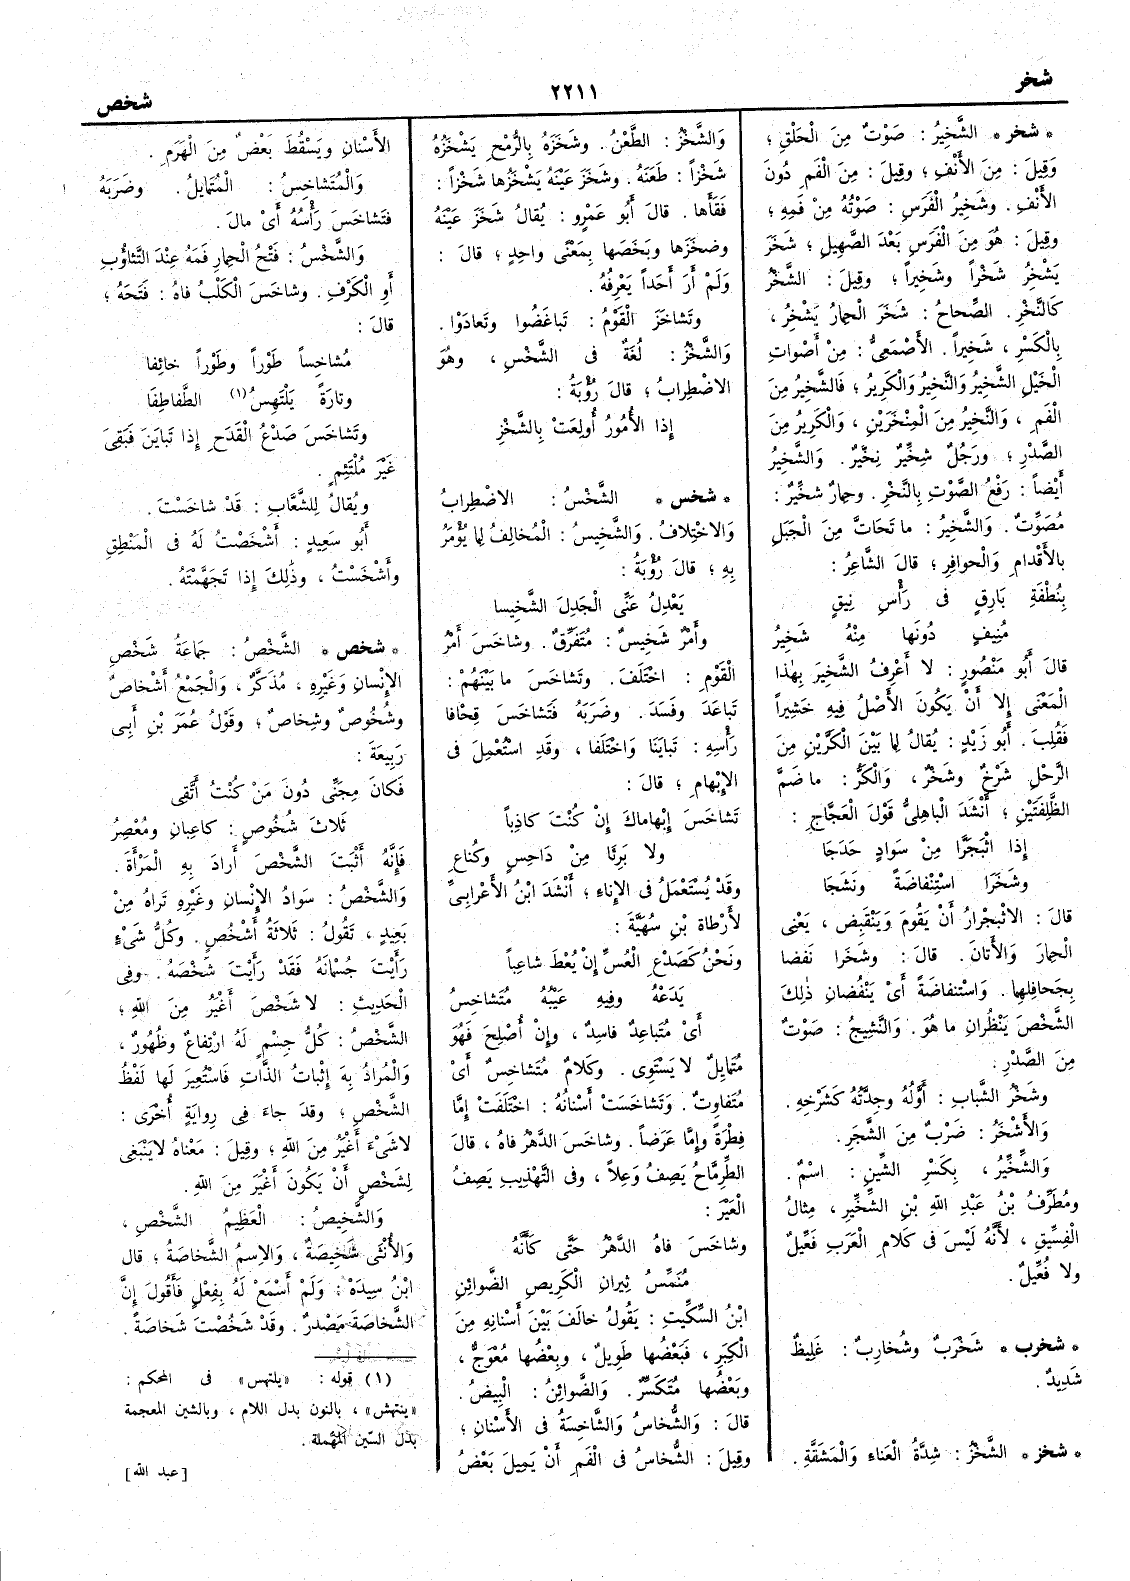 شخر
٢٢١١
شخص
* شخر * الشَّخِيرُ : صَوْتٌ مِنَ الْحَلْقِ ؛
وَقِيلَ : مِنَ الْأَنْفِ ؛ وقِيلَ : مِنَ الْفَمِ دُونَ
الْأَنْفِ . وشَخِيرُ الْفَرَسِ : صَوْتُهُ مِنْ فَمِهِ ؛
وقِيلَ : هُوَ مِنَ الْفَرَسِ بَعْدَ الصَّهِيلِ ؛ شَخَرَ
يَشْخِرُ شَخْراً وشَخِيراً ؛ وقِيلَ : الشَّخْرُ
كَالنَّخْرِ . الصِّحاحُ : شَخَرَ الْحِمارُ يَشْخِرُ ،
بِالْكَسْرِ ، شَخِيراً . الأَصْمَعِىُّ : مِنْ أَصْواتِ
الْخَيْلِ الشَّخِيرُ وَالنَّخِيرُ وَالْكَرِيرُ ؛ فَالشَّخِيرُ مِنَ
الْفَمِ ، وَالنَّخِيرُ مِنَ الْمِنْخَرَيْنِ ، وَالْكَرِيرُ مِنَ
الصَّدْرِ ؛ ورَجُلٌ شِخِّيرٌ نِخِّيرٌ . وَالشَّخِيرُ
أَيْضاً : رَفْعُ الصَّوْتِ بِالنَّخْرِ . وحِمارٌ شِخِّيرٌ :
مُصَوِّتٌ . وَالشَّخِيرُ : ما تَحَاتَّ مِنَ الْجَبَلِ
بِالأَقْدامِ وَالْحوافِرِ ؛ قالَ الشَّاعِرُ :
بِنُطْفَةِ بَارِقٍ فِى رَأْسِ نِيقٍ
مُنِيفٍ دُونَها مِنْهُ شَخِيرُ
قالَ أَبُو مَنْصُورٍ : لا أَعْرِفُ الشَّخِيرَ بِهٰذا
الْمَعْنَى إِلا أَنْ يَكُونَ الأَصْلُ فِيهِ خَشِيراً
فَقُلِبَ . أَبُو زَيْدٍ : يُقالُ لِما بَيْنَ الْكَرَّيْنِ مِنَ
الرَّحْلِ شَرْخٌ وشَخْرٌ ، وَالْكَرُّ : ما ضَمَّ
الظَّلِفَتَيْنِ ؛ أَنْشَدَ الْباهِلِىُّ قَوْلَ الْعَجَّاجِ :
إِذا اثْبَجَرَّا مِنْ سَوادٍ حَدَجَا
وشَخَرَا اسْتِنْفاضَةً ونَشَجَا
قالَ : الاثْبِجْرارُ أَنْ يَقُومَ وَيَنْقَبِضَ ، يَعْنِى
الْحِمارَ وَالأَتانَ . قالَ : وشَخَرا نَفضا
بِجَحافِلِها . وَاسْتِنفاضَةً أَىْ يَنْفُضانِ ذٰلِكَ
الشَّخصَ يَنْظُرانِ ما هُوَ . وَالنَّشِيجُ : صَوْتٌ
مِنَ الصَّدْرِ .
وشَخْرُ الشَّبابِ : أَوَّلُهُ وجِدَّتُهُ كَشَرْخِهِ .
وَالأَشْخَرُ : ضَرْبٌ مِنَ الشَّجَرِ .
وَالشِّخِّيرُ ، بِكَسْرِ الشِّينِ : اسْمٌ .
ومُطَرِّفُ بْنُ عَبْدِ اللهِ بْنِ الشِّخِّيرِ ، مِثالُ
الْفِسِّيقِ ، لأَنَّهُ لَيْسَ فى كَلامِ الْعَرَبِ فَعِّيلٌ
ولا فُعِّيلٌ .
* شخرب * شَخْرَبٌ وشُخارِبٌ : غَلِيظٌ
شَدِيدٌ .
* شخز * الشَّخْزُ : شِدَّةُ الْعَناءِ وَالْمَشَقَّةِ .
وَالشَّخْزُ : الطَّعْنُ . وشَخَزَهُ بِالرُّمْحِ يَشْخَزُهُ
شَخْزاً : طَعَنَهُ . وشَخَزَ عَيْنَهُ يَشْخَزُها شَخْزاً :
فَقَأَها . قالَ أَبُو عَمْرٍو : يُقالُ شَخَزَ عَيْنَهُ
وضخَزَها وبَخَصَها بِمَعْنًى واحِدٍ ؛ قالَ :
وَلَمْ أَرَ أَحَداً يَعْرِفُهُ .
وتَشاخَزَ الْقَوْمُ : تَباغَضُوا وتَعادَوْا .
وَالشَّخْزُ : لُغَةٌ فى الشَّخْسِ ، وهُوَ
الاضْطِرابُ ؛ قالَ رُؤْبَةُ :
إِذا الأُمُورُ أُولِعَتْ بِالشَّخْزِ
* شخس * الشَّخْسُ : الاضْطِرابُ
وَالاخْتِلافُ . وَالشَّخِيسُ : الْمُخالِفُ لِما يُؤْمَرُ
بِهِ ؛ قالَ رُؤْبَةُ :
يَعْدِلُ عَنِّى الْجَدِلَ الشَّخِيسا
وأَمْرٌ شَخِيسٌ : مُتَفَرِّقٌ . وشاخَسَ أَمْرُ
الْقَوْمِ : اخْتَلَفَ . وتَشاخَسَ ما بَيْنَهُمْ :
تَباعَدَ وفَسَدَ . وضَرَبَهُ فَتَشاخَسَ قِحْفا
رَأْسِهِ : تَبايَنَا وَاخْتَلَفا ، وقَدِ اسْتُعْمِلَ فى
الإِبْهامِ ؛ قالَ :
تَشاخَسَ إِبْهاماكَ إِنْ كُنْتَ كاذِباً
ولا بَرِئَا مِنْ دَاحِسٍ وكُناعِ
وقَدْ يُسْتَعْمَلُ فى الإِناءِ ؛ أَنْشَدَ ابْنُ الأَعْرابِىِّ
لأَرْطاةَ بْنِ سُهَيَّةَ :
ونَحْنُ كَصَدْعِ الْعُسِّ إِنْ يُعْطَ شاعِباً
يَدَعْهُ وفِيهِ عَيْبُهُ مُتَشاخِسُ
أَىْ مُتَباعِدٌ فاسِدٌ ، وإِنْ أُصْلِحَ فَهُوَ
مُتَمايِلٌ لا يَسْتَوِى . وكَلامٌ مُتَشاخِسٌ أَىْ
مُتَفاوِتٌ . وَتَشاخَسَتْ أَسْنانُهُ : اخْتَلَفَتْ إِمَّا
فِطْرَةً وإِمَّا عَرَضاً . وشاخَسَ الدَّهْرُ فاهُ ، قالَ
الطِّرِمَّاحُ يَصِفُ وَعِلاً ، وفى التَّهْذِيبِ يَصِفُ
الْعَيْرَ :
وشاخَسَ فاهُ الدَّهْرُ حَتَّى كَأَنَّهُ
مُنَمِّسُ ثِيرانِ الْكَرِيصِ الضَّوائِنِ
ابْنُ السِّكِّيتِ : يَقُولُ خالَفَ بَيْنَ أَسْنانِهِ مِنَ
الْكِبَرِ ، فَبَعْضُها طَوِيلٌ ، وبَعْضُها مُعْوَجٌّ ،
وبَعْضُها مُتَكَسِّرٌ . وَالضَّوائِنُ : الْبِيضُ .
قالَ : وَالشُّخاسُ وَالشَّاخِسَةُ فى الأَسْنانِ ؛
وقِيلَ : الشُّخاسُ فى الْفَمِ أَنْ يَمِيلَ بَعْضُ
الأَسْنانِ ويَسْقُطَ بَعْضٌ مِنَ الْهَرَمِ .
وَالْمُتَشاخِسُ : الْمُتَمايِلُ . وضَرَبَهُ
فَتَشاخَسَ رَأْسُهُ أَىْ مالَ .
وَالشَّخْسُ : فَتْحُ الْحِمارِ فَمَهُ عِنْدَ التَّثاؤُبِ
أَوِ الْكَرْفِ . وشاخَسَ الْكَلْبُ فاهُ : فَتَحَهُ ؛
قالَ :
مُشاخِساً طَوْراً وطَوْراً خائِفا
وتارَةً يَلْتَهِسُ(١) الطَّفاطِفَا
وتَشاخَسَ صَدْعُ الْقَدَحِ إِذا تَبايَنَ فَبَقِىَ
غَيْرَ مُلْتَئِمٍ .
ويُقالُ لِلشَّعَّابِ : قَدْ شاخَسْتَ .
أَبُو سَعِيدٍ : أَشْخَصْتُ لَهُ فى الْمَنْطِقِ
وأَشْخَسْتُ ، وذٰلِكَ إِذا تَجَهَّمْتَهُ .
* شخص * الشَّخْصُ : جَماعَةُ شَخْصِ
الإِنْسانِ وَغَيْرِهِ ، مُذَكَّرٌ ، وَالْجَمْعُ أَشْخاصٌ
وشُخُوصٌ وشِخاصٌ ؛ وقَوْلُ عُمَرَ بْنِ أَبِى
رَبِيعَةَ :
فَكانَ مِجَنِّى دُونَ مَنْ كُنْتُ أَتَّقِى
ثَلاثَ شُخُوصٍ : كاعِبانِ ومُعْصِرُ
فَإِنَّهُ أَثْبَتَ الشَّخْصَ أَرادَ بِهِ الْمَرْأَةَ .
وَالشَّخْصُ : سَوادُ الإِنْسانِ وغَيْرِهِ تَراهُ مِنْ
بَعِيدٍ ، تَقُولُ : ثَلاثَةُ أَشْخُصٍ . وكُلُّ شَىْءٍ
رَأَيْتَ جُسْمانَهُ فَقَدْ رَأَيْتَ شَخْصَهُ . وفى
الْحَدِيثِ : لا شَخْصَ أَغْيَرُ مِنَ اللهِ ؛
الشَّخْصُ : كُلُّ جِسْمٍ لَهُ ارْتِفاعٌ وظُهُورٌ ،
وَالْمُرادُ بِهِ إِثْباتُ الذَّاتِ فَاسْتُعِيرَ لَها لَفْظُ
الشَّخْصِ ؛ وقدَ جاءَ فى رِوايَةٍ أُخْرَى :
لا شَىْءَ أَغْيَرُ مِنَ اللهِ ؛ وقِيلَ : مَعْناهُ لا يَنْبَغِى
لِشَخْصٍ أَنْ يَكُونَ أَغْيَرَ مِنَ اللهِ .
وَالشَّخِيصُ : الْعَظِيمُ الشَّخْصِ ،
وَالأُنْثَى شَخِيصَةٌ ، وَالاِسمُ الشَّخاصَةُ ؛ قال
ابْنُ سِيدَهْ : وَلَمْ أَسْمَعْ لَهُ بِفِعْلٍ فَأَقُولَ إِنَّ
الشَّخاصَةَ مَصْدَرٌ . وقَدْ شَخُصَتْ شَخاصَةً .
(١) قوله : «يلتهس» فى المحكم :
«ينتهش» ، بالنون بدل اللام ، وبالشين المعجمة
بدل السّين المُهْملة .
[عبد الله]